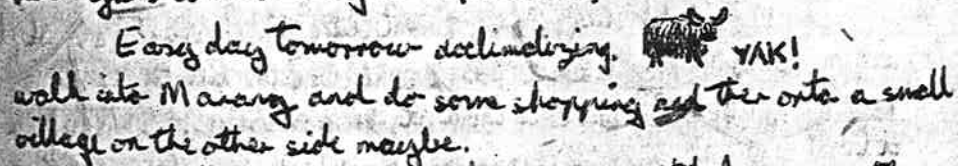 Easy day tomorrow acclimatizing. YAK!
walk into Manang and do some shopping and then onto a small
village on the other side maybe.